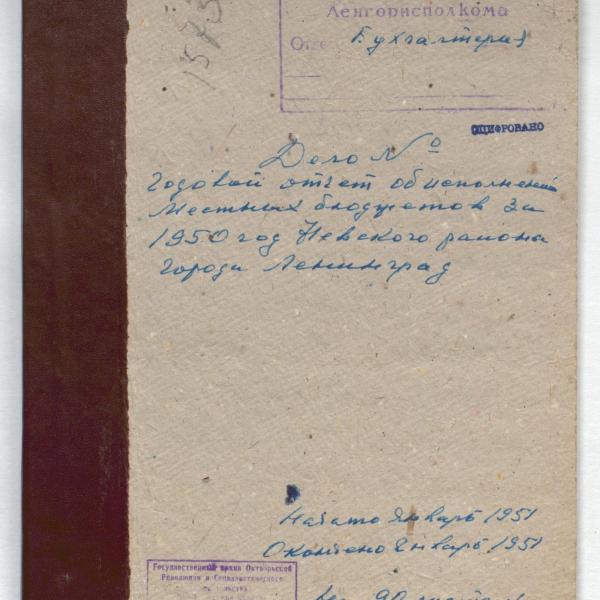 1573
Ленгорисполкома
Отде Бухгалтерия
ОЦИФРОВАНО
Дело №
Годовой отчет об исполнении
Местных бюджетов за
1950 год Невского района
города Ленинград
Начато Январь 1951
Окончено Январь 1951
Государственный архив Октябрьской
Революции и Социалистического
на 90 листах